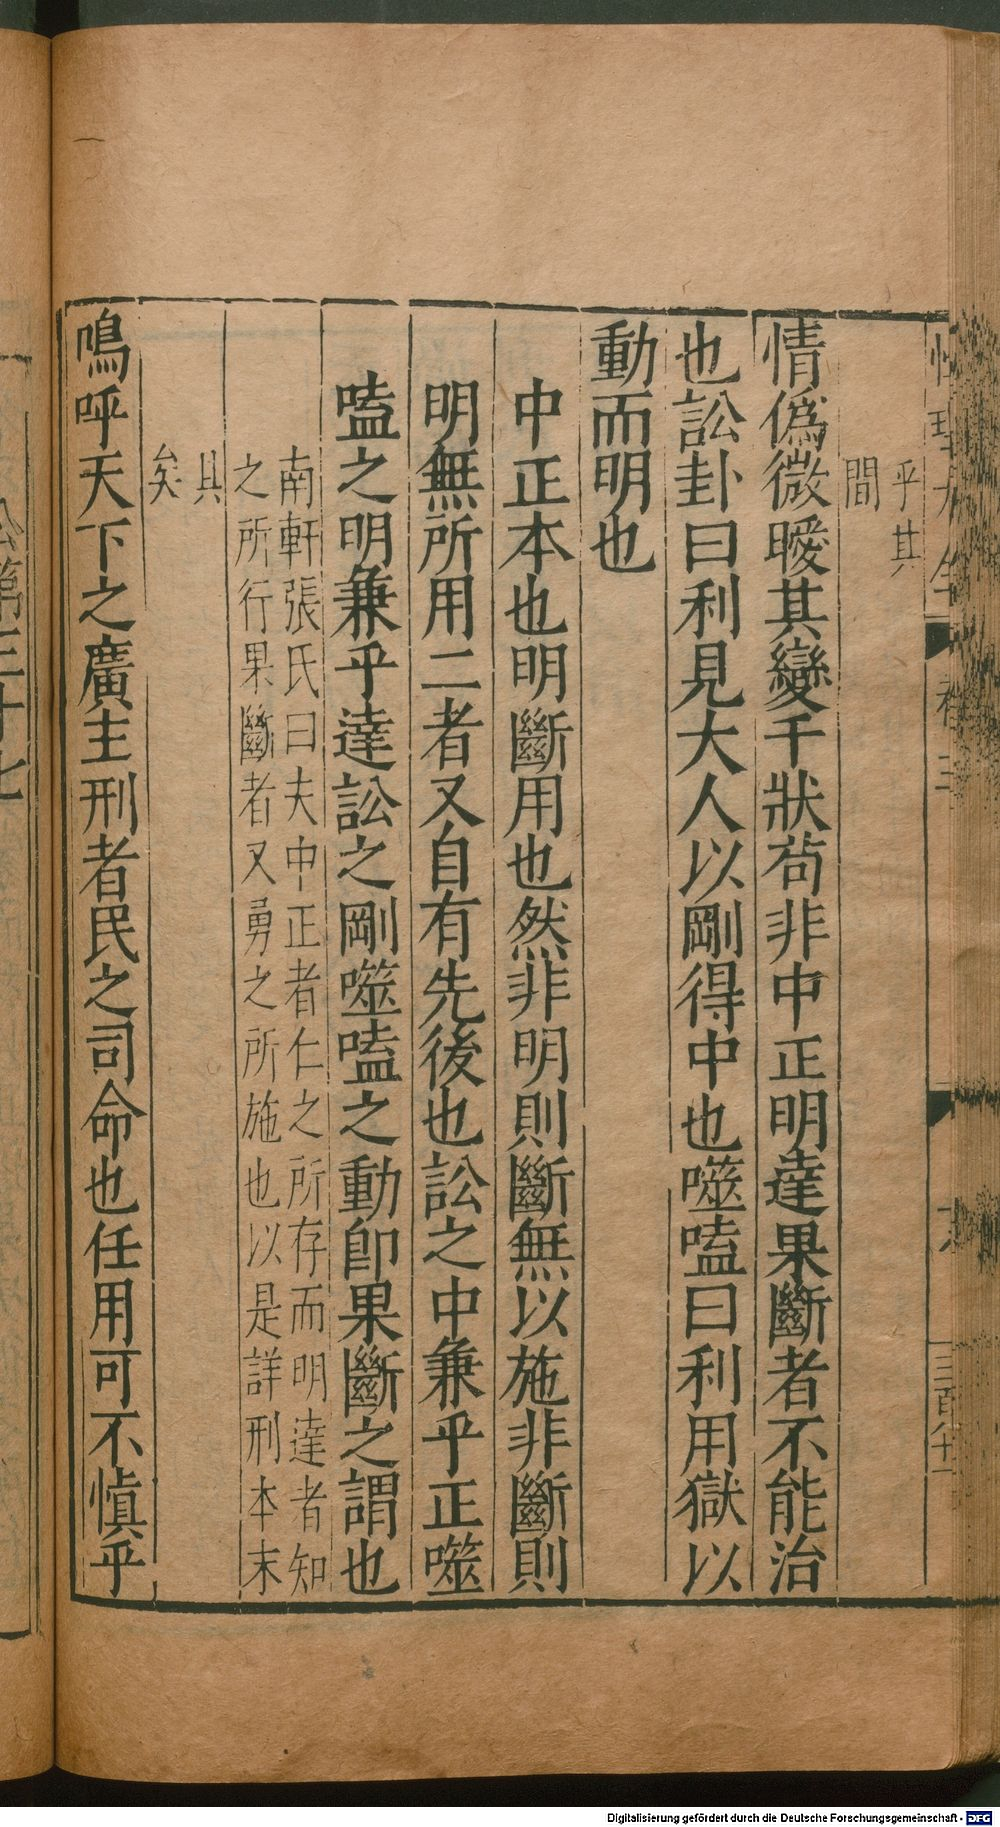 乎其
間
情僞微曖其變千狀苟非中正明達果斷者不能治
也訟卦曰利見大人以剛得中也噬嗑曰利用獄以
動而明也
中正本也明斷用也然非明則斷無以施非斷則
明無所用二者又自有先後也訟之中兼乎正噬
嗑之明兼乎達訟之剛噬嗑之動卽果斷之謂也
南軒張氏曰夫中正者仁之所存而明達者知
之所行果斷者又勇之所施也以是詳刑本末
具
矣
嗚呼天下之廣主刑者民之司命也任用可不愼乎
Digitalisierung gefördert durch die Deutsche Forschungsgemeinschaft - DFG